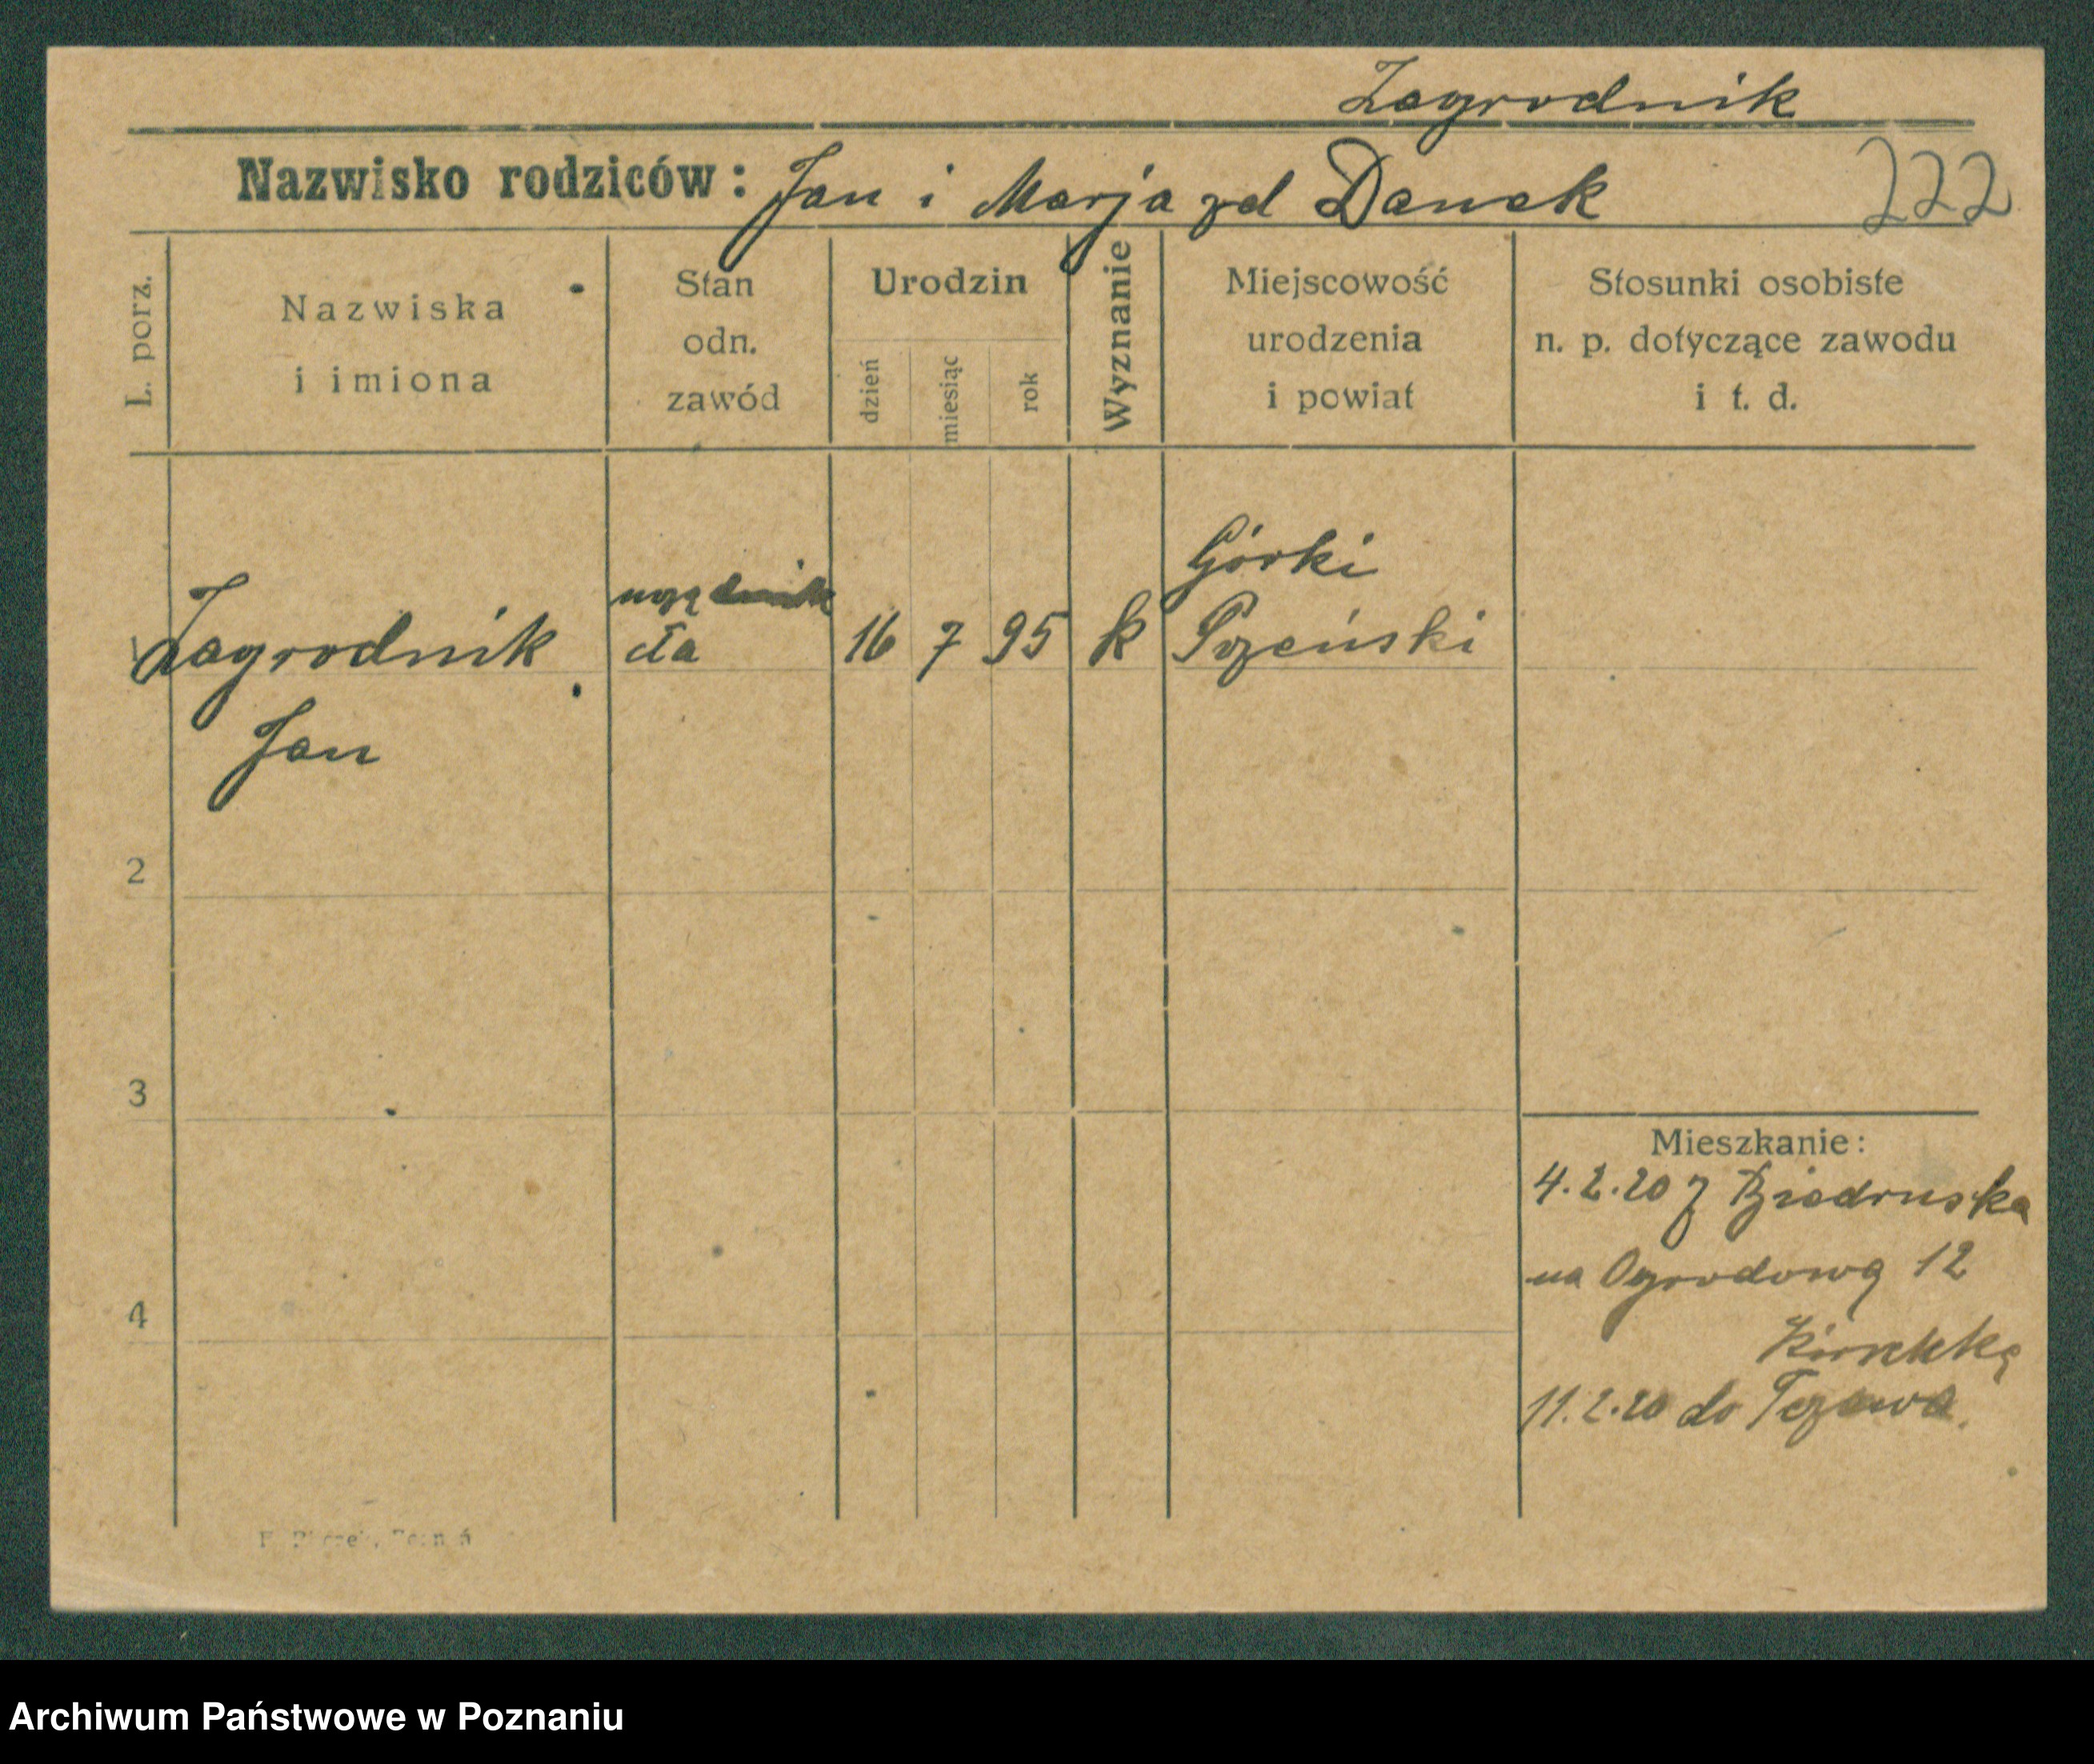 Zagrodnik
Nazwisko rodziców: Jan i Marja zd Danek
222
L. porz.
Nazwiska
i imiona
Stan
odn.
zawód
Urodzin
dzień
miesiąc
rok
Wyznanie
Miejscowość
urodzenia
i powiat
Stosunki osobiste
n. p. dotyczące zawodu
i t. d.
Zagrodnik
Jan
urzędnik
cła
16 7 95 k
Górki
2
3
4
Mieszkanie:
4.2.20 z Biedruska
na Ogrodową 12
11.2.20 do Tczewa.
Poznań
Archiwum Państwowe w Poznaniu